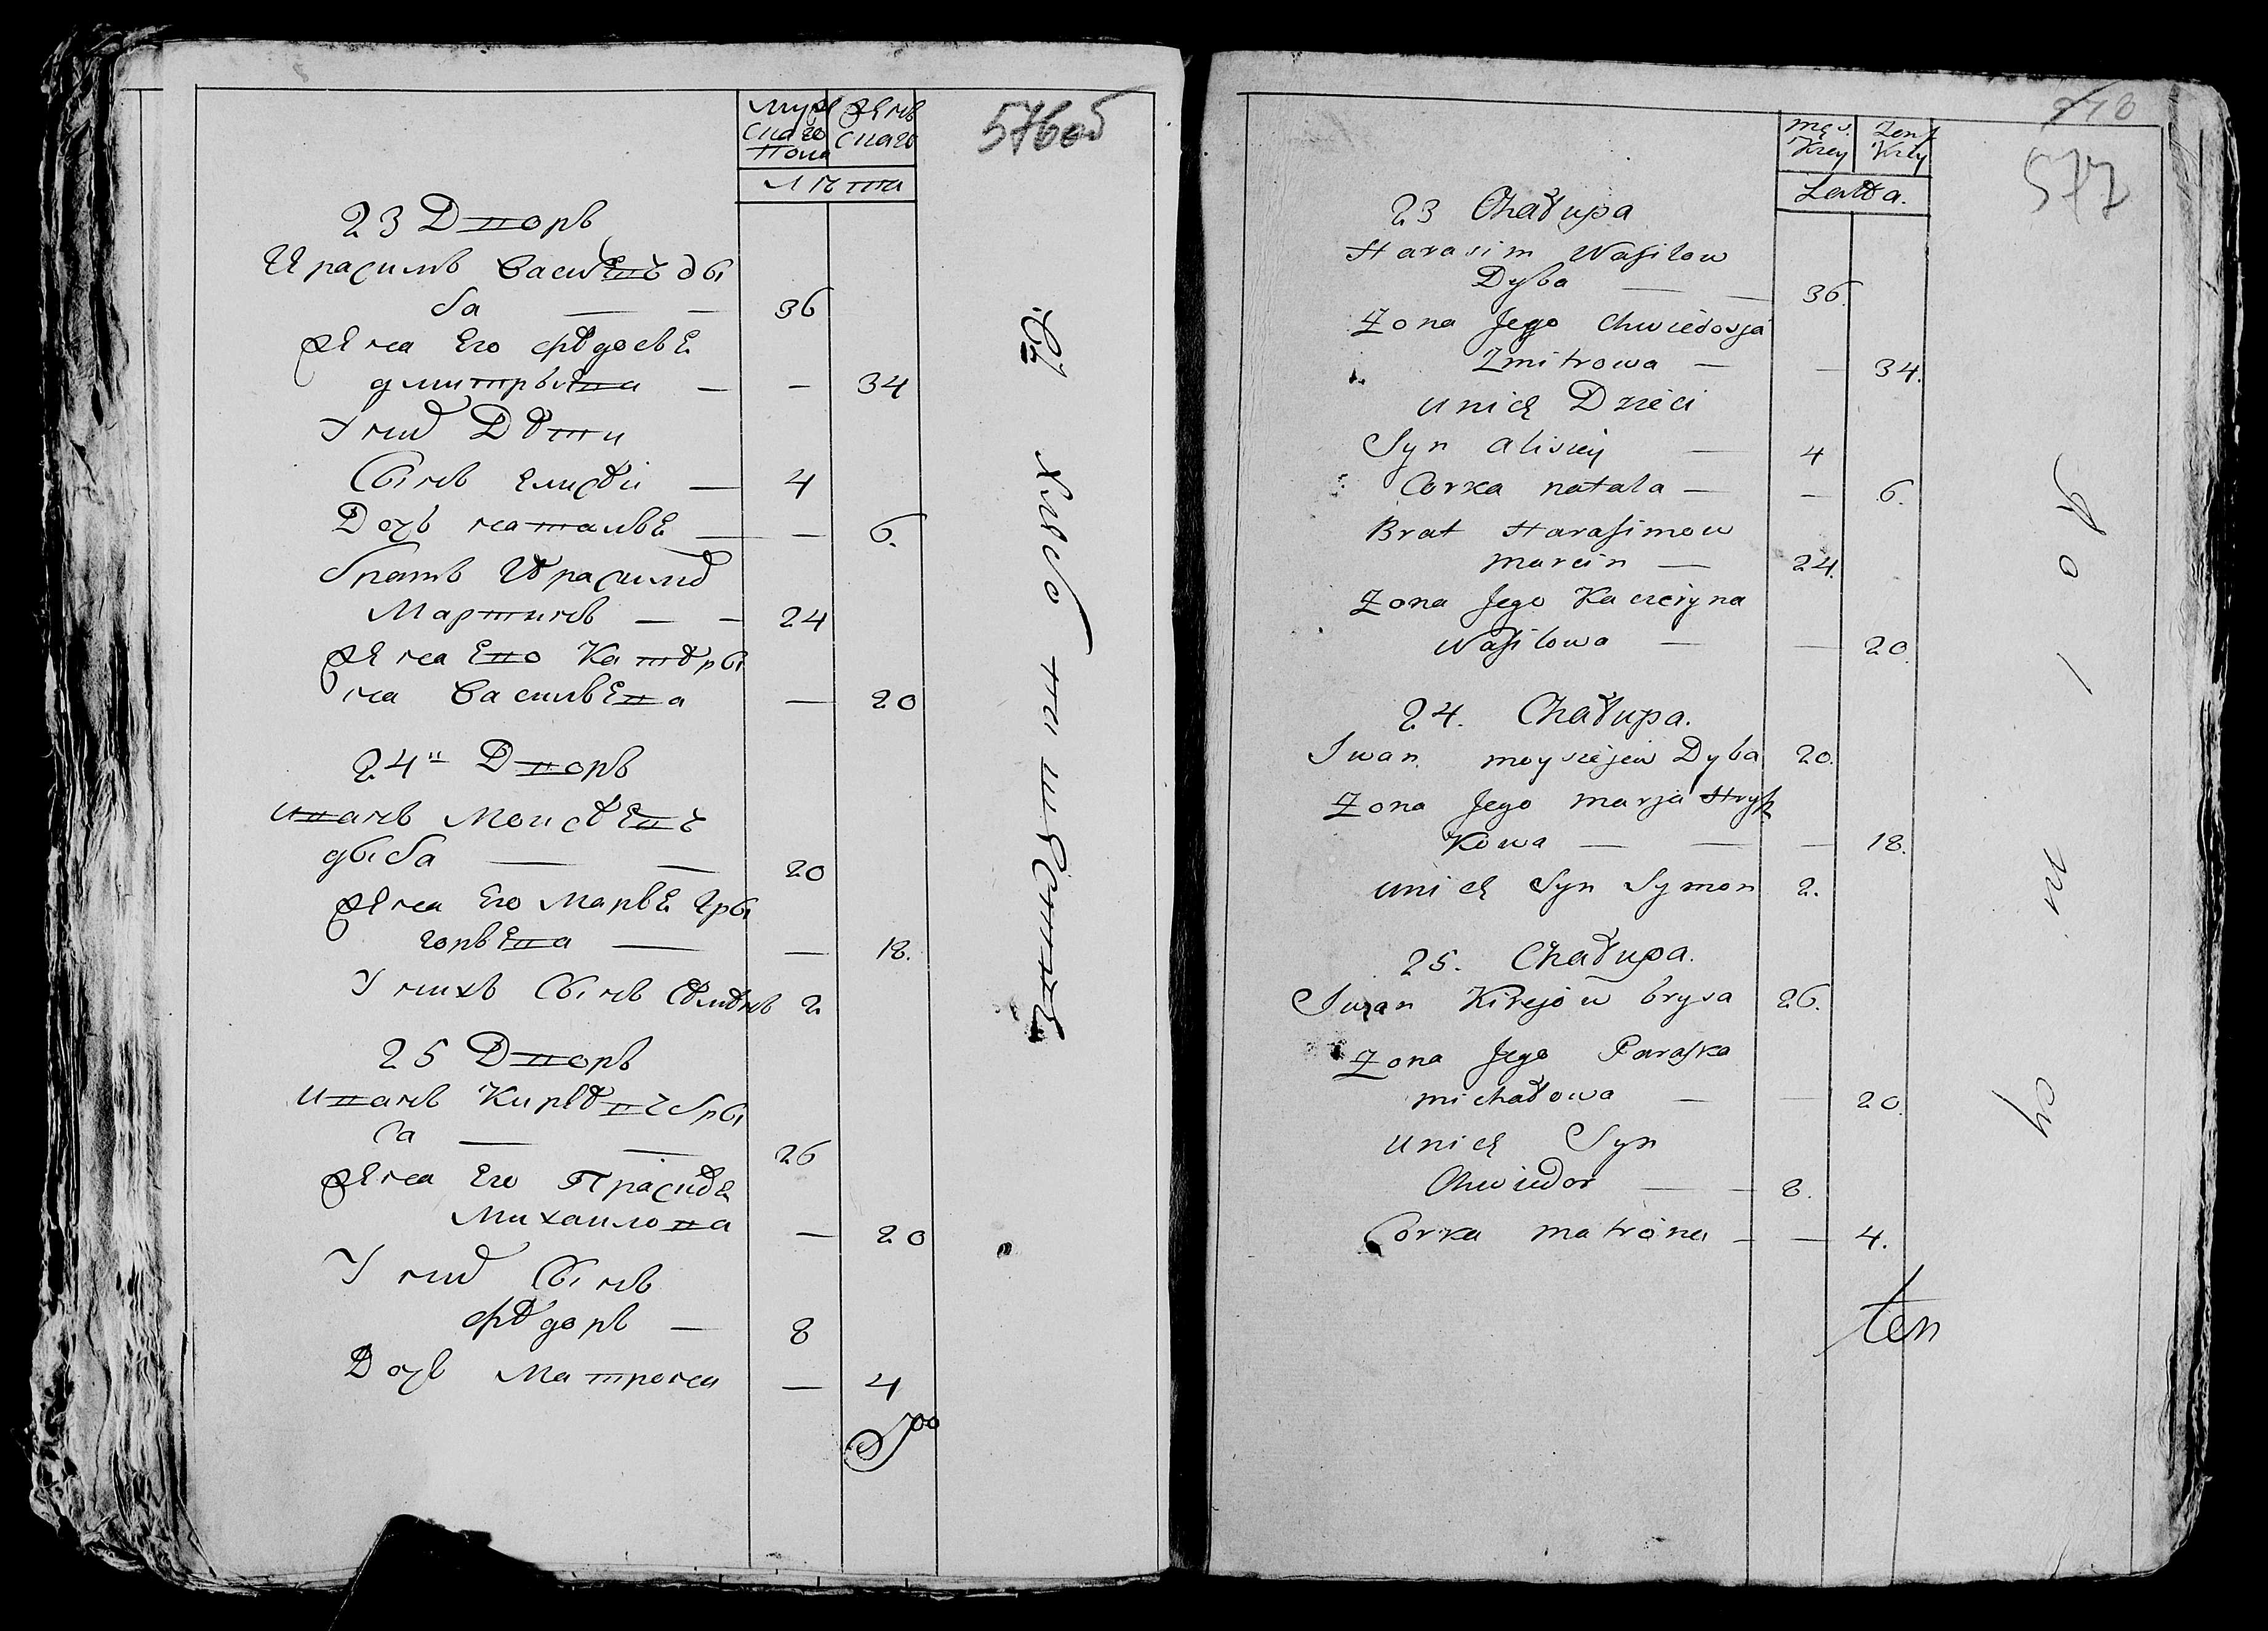 Муже
скаго
пола
Женъ
скаго
576об
Лѣта
23 Дворъ
Герасимъ Василевъ ды
ба — — 36
Жена Его Федосье
дмитрыева — — 34
У нихъ Дѣти
Сынъ Елисѣй — 4
Дочь наталье — — 6.
братъ Герасимов
Мартинъ — — 24
Жена Ево Катеры
на Васильева — 20
24й Дворъ
иванъ Моисеевъ
дыба — — 20
Жена Его Марье Гры
горьева — — 18.
У нихъ Сынъ Семенъ 2
25 Дворъ
иванъ Киреевъ бры
са — — 26
Жена Его Прасиде
Михаилова — 20
У них Сынъ
федоръ — 8
Дочь Матрона — 4
578
577
męs.
Kiey
Żensk
Kiey
Latta.
23 Chałupa
Harasim Wasilow
Dyba — — 36.
Żona Jego Chwiedosja
Zmitrowa — — 34.
unich Dzieci
Syn alisiey — 4
Corka natala — — 6.
Brat Harasimow
marcin — 24.
Żona Jego Kacieryna
Wasilowa — — 20.
24. Chałupa.
Iwan moysiejew Dyba 20.
Żona Jego marja Hrysz
Kowa — — — 18.
unich Syn Symon 2.
25. Chałupa.
Iwan Kirejow brysa 26.
Żona Jego Paraska
michałowa — — 20.
unich Syn
Chwiedor — — 8.
Corka matrona — — 4.
ten